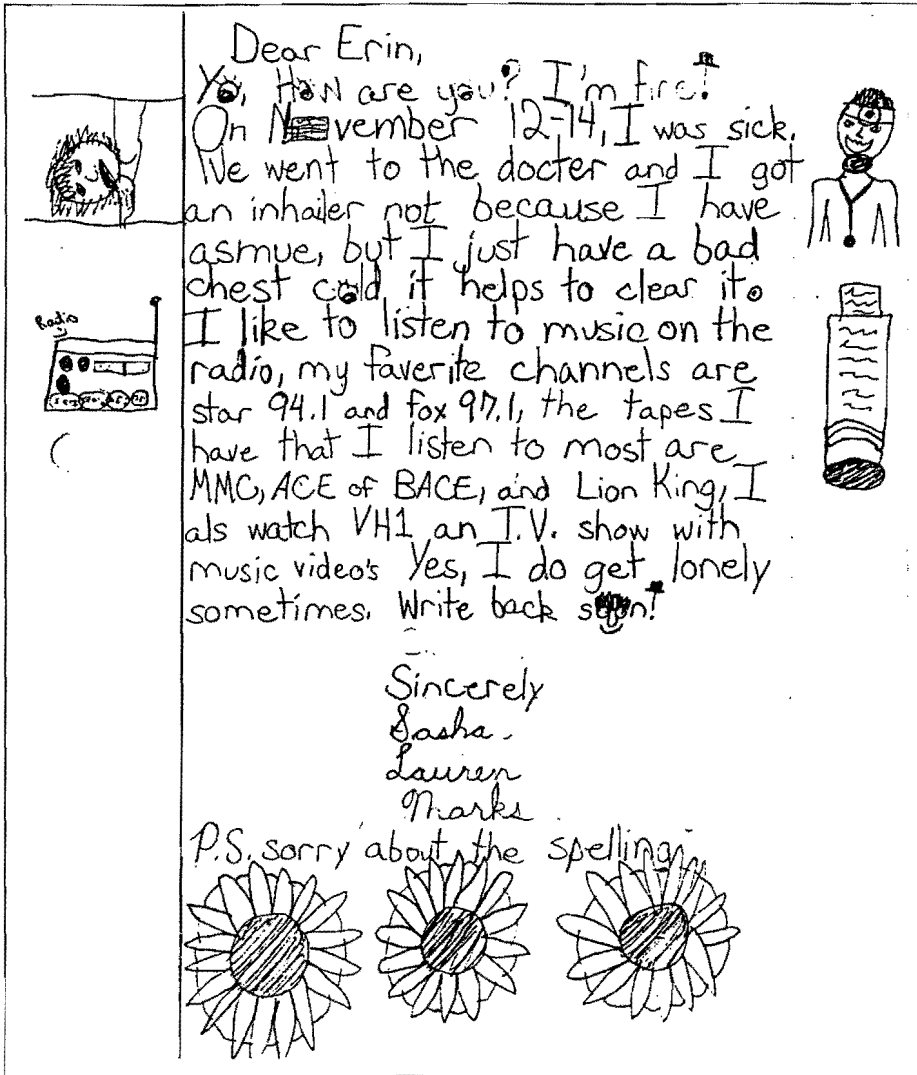 Dear Erin,
Yo, How are you? I'm fine!
On November 12-14, I was sick.
We went to the docter and I got
an inhailer not because I have
asmue, but I just have a bad
chest cold it helps to clear it.
I like to listen to music on the
Radio
radio, my faverite channels are
star 94.1 and fox 97.1, the tapes I
have that I listen to most are
MMC, ACE of BACE, and Lion King, I
als watch VH1 an T.V. show with
music video's Yes, I do get lonely
sometimes. Write back soon!
Sincerely
Sasha
Lauren
Marks
P.S. sorry about the spelling